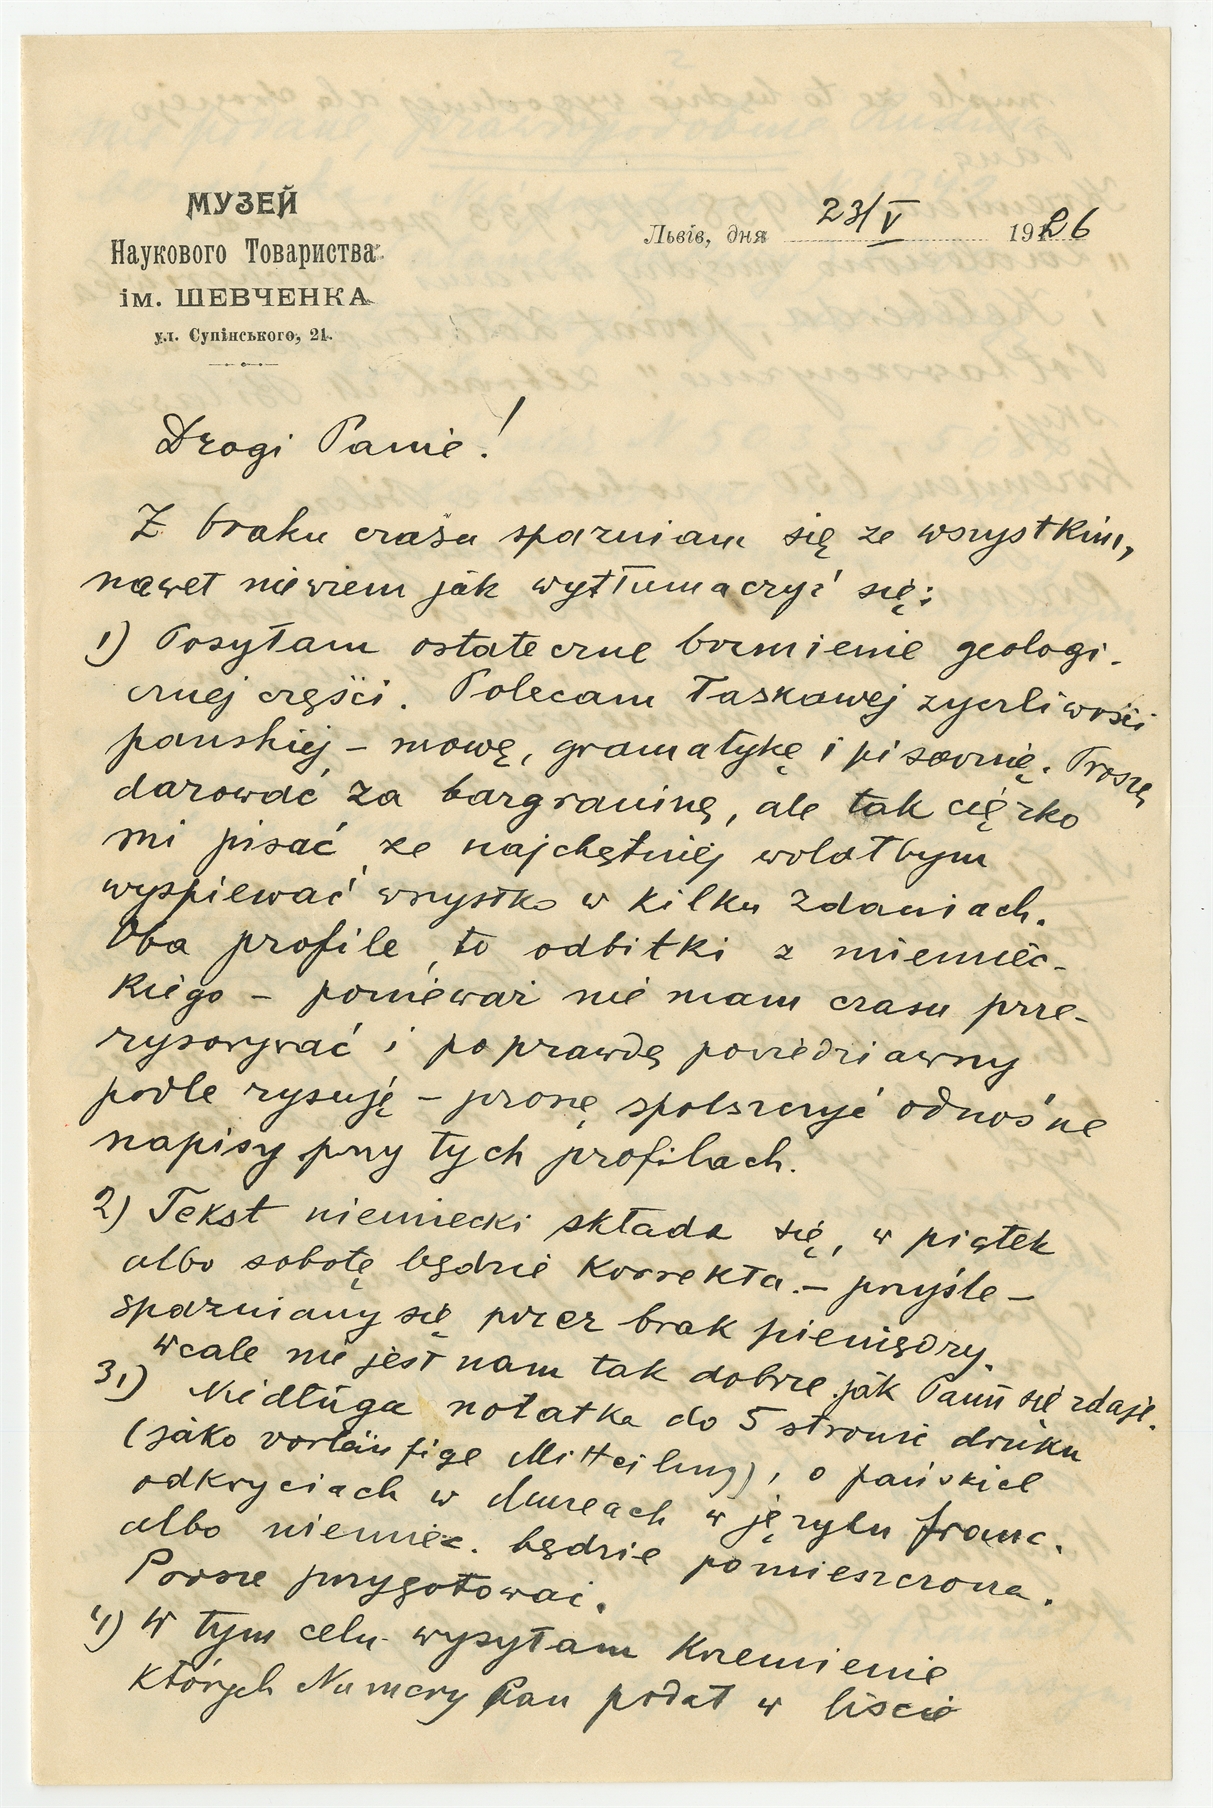 МУЗЕЙ
Наукового Товариства
ім. ШЕВЧЕНКА
ул. Супінського, 21.
Львів, дня 23/V 1926
Drogi Panie!
Z braku czasu spazniam się ze wszystkim,
nawet niewiem jak wytłumaczyć się:
1) Posyłam ostateczne brzmienie geologi-
cznej części. Polecam łaskawej zyczliwości
panskiej – mowę, gramatykę i pisownię. Proszę
darować za bazgraninę, ale tak ciężko
mi pisać, ze najchętniej wolałbym
wyspiewać wszystko w kilku zdaniach.
Oba profile, to odbitki z niemiec-
kiego – ponieważ nie mam czasu prze-
rysowywać i poprawdę powiedziawszy
podle rysuję – proszę spolszczyć odnośne
napisy przy tych profilach.
2) Tekst niemiecki składa się, w piątek
albo sobotę będzie korrekta. – przyśle –
spazniany się przez brak pieniędzy.
wcale nie jest nam tak dobrze jak Panu się zdaje.
3.) Niedługa notatka do 5 stronic druku
(jako vorläufige Mitteilung), o pańskich
odkryciach w           w języku franc.
albo niemiec. będzie pomieszczona.
Prosze przygotować.
4) W tym celu wysyłam Krzemienie
których Numery Pan podał w liscie